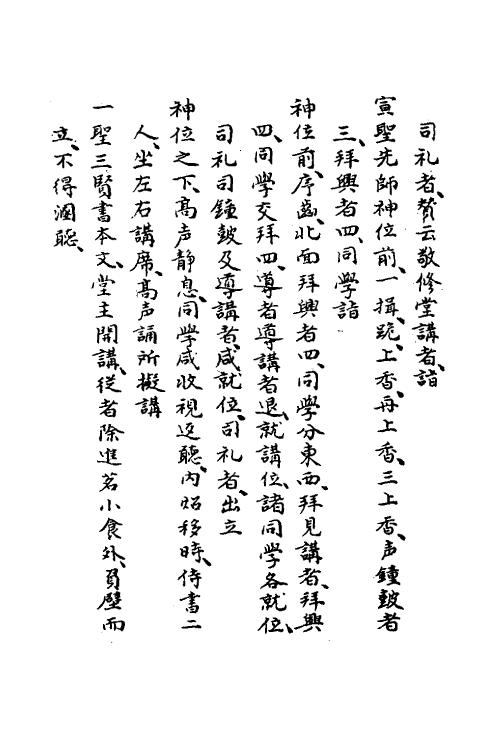 司礼者、贊云敬修堂講者、詣
寅聖先師神位前、一揖、跪、上香、再上香、三上香、声鐘皷者
三、拜興者四、同學詣
神位前、序齒、北面拜興者四、同學分東西、拜見講者、拜興
四、同學交拜四、導者導講者退、就講位、諸同學各就位、
司礼司鐘皷及導講者、咸就位、司礼者、出立
神位之下、高声静息、同學咸收視返聽、內炤移時、侍書二
人、坐左右講席、高声誦所擬講
一聖三賢書本文、堂主開講、從者除進茗小食外、負壁而
立、不得溷聽、